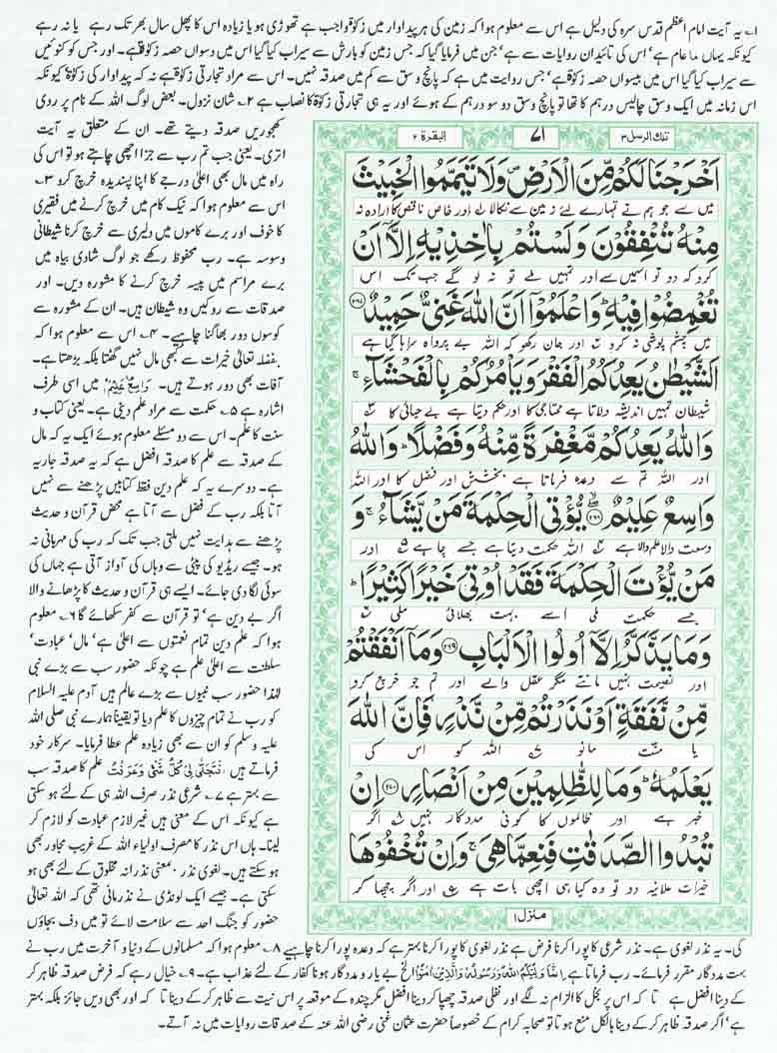 ۱۔ یہ آیت امام اعظم قدس سرہ کی دلیل ہے اس سے معلوم ہوا کہ زمین کی ہر پیداوار میں زکوٰۃ واجب ہے تھوڑی ہو یا زیادہ اس کا پھل سال بھر تک رہے یا نہ رہے
کیونکہ یہاں ما عام ہے' اس کی تائید ان روایات سے ہے' جن میں فرمایا گیا کہ جس زمین کو بارش سے سیراب کیا گیا اس میں دسواں حصہ زکوٰۃ ہے۔ اور جس کو کنوئیں
سے سیراب کیا گیا اس میں بیسواں حصہ زکوٰۃ ہے' جس روایت میں ہے کہ پانچ وسق سے کم میں صدقہ نہیں۔ اس سے مراد تجارتی زکوٰۃ ہے نہ کہ پیداوار کی زکوٰۃ کیونکہ
اس زمانہ میں ایک وسق چالیس درہم کا تھا تو پانچ وسق دو سو درہم کے ہوئے اور یہ ہی تجارتی زکوٰۃ کا نصاب ہے ۲۔ شان نزول۔ بعض لوگ اللہ کے نام پر ردی
کھجوریں صدقہ دیتے تھے۔ ان کے متعلق یہ آیت
اتری۔ یعنی جب تم رب سے جزا اچھی چاہتے ہو تو اس کی
راہ میں مال بھی اعلیٰ درجے کا اپنا پسندیدہ خرچ کرو ۳۔
اس سے معلوم ہوا کہ نیک کام میں خرچ کرنے میں فقیری
کا خوف اور برے کاموں میں دلیری سے خرچ کرنا شیطانی
وسوسہ ہے۔ رب محفوظ رکھے جو لوگ شادی بیاہ میں
برے مراسم میں پیسہ خرچ کرنے کا مشورہ دیں۔ اور
صدقات سے روکیں وہ شیطان ہیں۔ ان کے مشورہ سے
کوسوں دور بھاگنا چاہیے۔ ۴۔ اس سے معلوم ہوا کہ
بفضلہ تعالیٰ خیرات سے کبھی مال نہیں گھٹتا بلکہ بڑھتا ہے۔
آفات بھی دور ہوتے ہیں۔ وَاسِعٌ عَلِیْمٌ میں اسی طرف
اشارہ ہے ۵۔ حکمت سے مراد علم دینی ہے۔ یعنی کتاب و
سنت کا علم۔ اس سے دو مسئلے معلوم ہوئے ایک یہ کہ مال
کے صدقہ سے علم کا صدقہ افضل ہے کہ یہ صدقہ جاریہ
ہے۔ دوسرے یہ کہ علم دین فقط کتابیں پڑھنے سے نہیں
آتا بلکہ رب کے فضل سے آتا ہے محض قرآن و حدیث
پڑھنے سے ہدایت نہیں ملتی جب تک کہ رب کی مہربانی نہ
ہو۔ جیسے ریڈیو کی پیٹی سے وہاں کی آواز آتی ہے جہاں کی
سوئی لگا دی جائے۔ ایسے ہی قرآن و حدیث کا پڑھانے والا
اگر بے دین ہے' تو قرآن سے کفر سکھائے گا ۶۔ معلوم
ہوا کہ علم دین تمام نعمتوں سے اعلیٰ ہے' مال' عبادت'
سلطنت سے اعلیٰ علم ہے چونکہ حضور سب سے بڑے نبی
لہٰذا حضور سب نبیوں سے بڑے عالم ہیں آدم علیہ السلام
کو رب نے تمام چیزوں کا علم دیا تو یقیناً ہمارے نبی صلی اللہ
علیہ وسلم کو ان سے بھی زیادہ علم عطا فرمایا۔ سرکار خود
فرماتے ہیں فَتَجَلّٰی لِیْ کُلُّ شَیْءٍ وَعَرَفْتُ علم کا صدقہ سب
سے بہتر ہے ۷۔ شرعی نذر صرف اللہ ہی کے لئے ہو سکتی
ہے کیونکہ اس کے معنی ہیں غیر لازم عبادت کو لازم کر
لینا۔ ہاں اس نذر کا مصرف اولیاء اللہ کے غریب مجاور بھی
ہو سکتے ہیں۔ لغوی نذر بمعنی نذرانہ مخلوق کے لئے بھی ہو
سکتی ہے۔ جیسے ایک لونڈی نے نذر مانی تھی کہ اللہ تعالیٰ
حضور کو جنگ احد سے سلامت لائے تو میں دف بجاؤں
تلک الرسل ۳
۷۱
البقرۃ ۲
اَخْرَجْنَا لَكُمْ مِّنَ الْاَرْضِ۪ وَلَا تَيَمَّمُوا الْخَبِيْثَ
میں سے جو ہم نے تمہارے لئے زمین سے نکالا ۱ اور خاص ناقص کا ارادہ نہ
مِنْهُ تُنْفِقُوْنَ وَلَسْتُمْ بِاٰخِذِيْهِ اِلَّاۤ اَنْ
کرو کہ دو تو اس میں سے اور تمہیں ملے تو نہ لو گے جب تک اس
تُغْمِضُوْا فِيْهِؕ وَاعْلَمُوْۤا اَنَّ اللّٰهَ غَنِىٌّ حَمِيْدٌ ۲۶۷
میں چشم پوشی نہ کرو ۲ اور جان رکھو کہ اللہ بے پرواہ سراہا گیا ہے
اَلشَّيْطٰنُ يَعِدُكُمُ الْفَقْرَ وَيَاْمُرُكُمْ بِالْفَحْشَآءِۚ
شیطان تمہیں اندیشہ دلاتا ہے محتاجی کا اور حکم دیتا ہے بے حیائی کا ۳
وَاللّٰهُ يَعِدُكُمْ مَّغْفِرَةً مِّنْهُ وَفَضْلًاؕ وَاللّٰهُ
اور اللہ تم سے وعدہ فرماتا ہے بخشش اور فضل کا اور اللہ
وَاسِعٌ عَلِيْمٌ ۲۶۸ يُّؤْتِى الْحِكْمَةَ مَنْ يَّشَآءُۚ وَ
وسعت والا علم والا ہے ۴ اللہ حکمت دیتا ہے جسے چاہے ۵ اور
مَنْ يُّؤْتَ الْحِكْمَةَ فَقَدْ اُوْتِىَ خَيْرًا كَثِيْرًاؕ
جسے حکمت ملی اسے بہت بھلائی ملی ۶
وَمَا يَذَّكَّرُ اِلَّاۤ اُولُوا الْاَلْبَابِ ۲۶۹ وَمَاۤ اَنْفَقْتُمْ
اور نصیحت نہیں مانتے مگر عقل والے اور تم جو خرچ کرو
مِّنْ نَّفَقَةٍ اَوْ نَذَرْتُمْ مِّنْ نَّذْرٍ فَاِنَّ اللّٰهَ
یا منت مانو ۷ اللہ کو اس کی
يَعْلَمُهٗؕ وَمَا لِلظّٰلِمِيْنَ مِنْ اَنْصَارٍ ۲۷۰ اِنْ
خبر ہے اور ظالموں کا کوئی مددگار نہیں ۸ اگر
تُبْدُوا الصَّدَقٰتِ فَنِعِمَّا هِىَۚ وَاِنْ تُخْفُوْهَا
خیرات علانیہ دو تو وہ کیا ہی اچھی بات ہے ۹ اور اگر چھپا کر
منزل۱
گی۔ یہ نذر لغوی ہے۔ نذر شرعی کا پورا کرنا فرض ہے نذر لغوی کا پورا کرنا بہتر ہے کہ وعدہ پورا کرنا چاہیے ۸۔ معلوم ہوا کہ مسلمانوں کے دنیا و آخرت میں رب نے
بہت مددگار مقرر فرمائے۔ رب فرماتا ہے۔ اِنَّمَا وَلِیُّکُمُ اللّٰہُ وَرَسُوْلُہٗ وَالَّذِیْنَ اٰمَنُوْا الخ بے یار و مددگار ہونا کفار کے لئے عذاب ہے۔ ۹۔ خیال رہے کہ فرض صدقہ ظاہر کر
کے دینا افضل ہے تا کہ اس پر بخل کا الزام نہ لگے اور نفلی صدقہ چھپا کر دینا افضل مگر چندہ کے موقعہ پر اس نیت سے ظاہر کر کے دینا تا کہ اور بھی دیں جائز بلکہ بہتر
ہے' اگر صدقہ ظاہر کر کے دینا بالکل منع ہوتا تو صحابہ کرام کے خصوصاً حضرت عثمان غنی رضی اللہ عنہ کے صدقات روایات میں نہ آتے۔